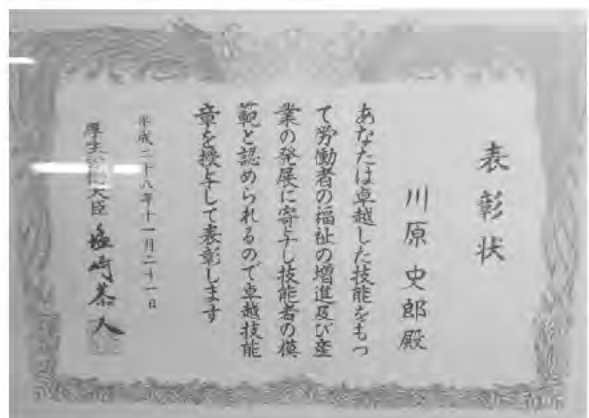 表彰状
川原史郎殿
あなたは卓越した技能をもつ
て労働者の福祉の増進及び産
業の発展に寄与し技能者の模
範と認められるので卓越技能
章を授与して表彰します
平成二十八年十一月二十一日
厚生労働大臣 塩崎恭久